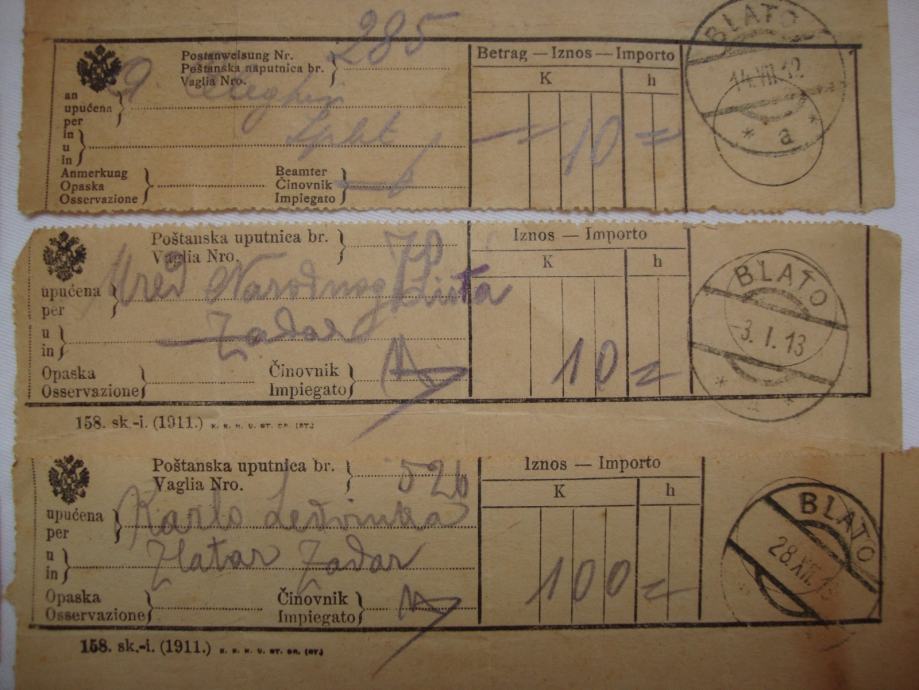 Postanweisung Nr.
Poštanska naputnica br. 285
Vaglia Nro.
Betrag — Iznos — Importo
K h
an
upućena
per
in
u Split
in
10 =
Anmerkung
Opaska
Osservazione
Beamter
Činovnik
Impiegato
BLATO
14.VII.12
* a *
Poštanska uputnica br. 70
Vaglia Nro.
Iznos — Importo
K h
upućena Ured Narodnog Lista
per
u Zadar
in
10 =
Opaska
Osservazione
Činovnik
Impiegato
BLATO
3. I. 13
158. sk.-i. (1911.)
Poštanska uputnica br. 526
Vaglia Nro.
Iznos — Importo
K h
upućena Karlo
per
u Zlatar Zadar
in
100 =
Opaska
Osservazione
Činovnik
Impiegato
BLATO
28.XII.
158. sk.-i. (1911.)